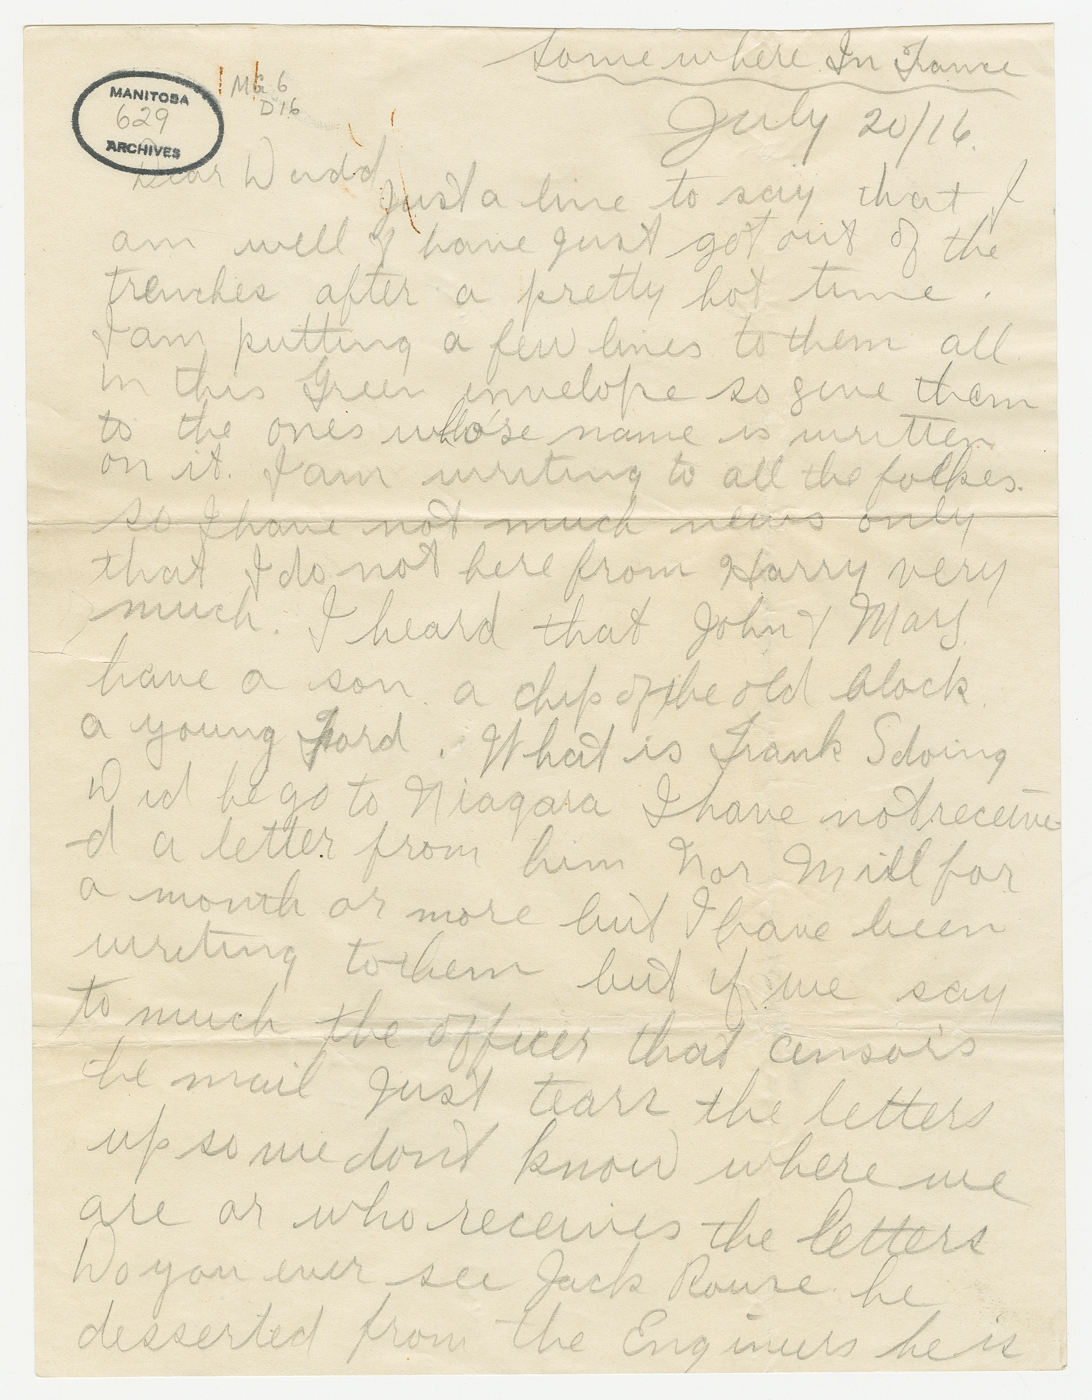 Somewhere In France
July 20/16.
MANITOBA
629
ARCHIVES
MG 6
D16
Dear Dudd
Just a line to say that I
am well & have just got out of the
trenches after a pretty hot time.
I am putting a few lines to them all
in this Green envelope so give them
to the ones who'se name is written
on it. I am writing to all the folkes.
so I have not much news only
that I do not here from Harry very
much. I heard that John & Mary
have a son a chip of the old block.
a young Ford. What is Frank S doing
Did he go to Niagara I have not receive
d a letter from him Nor Mill for
a month or more but I have been
writing to them but if we say
to much the officer that censors
the mail Just tears the letters
up so we dont know where we
are or who receives the letters
Do you ever see Jack Rouse he
desserted from the Engineers he is